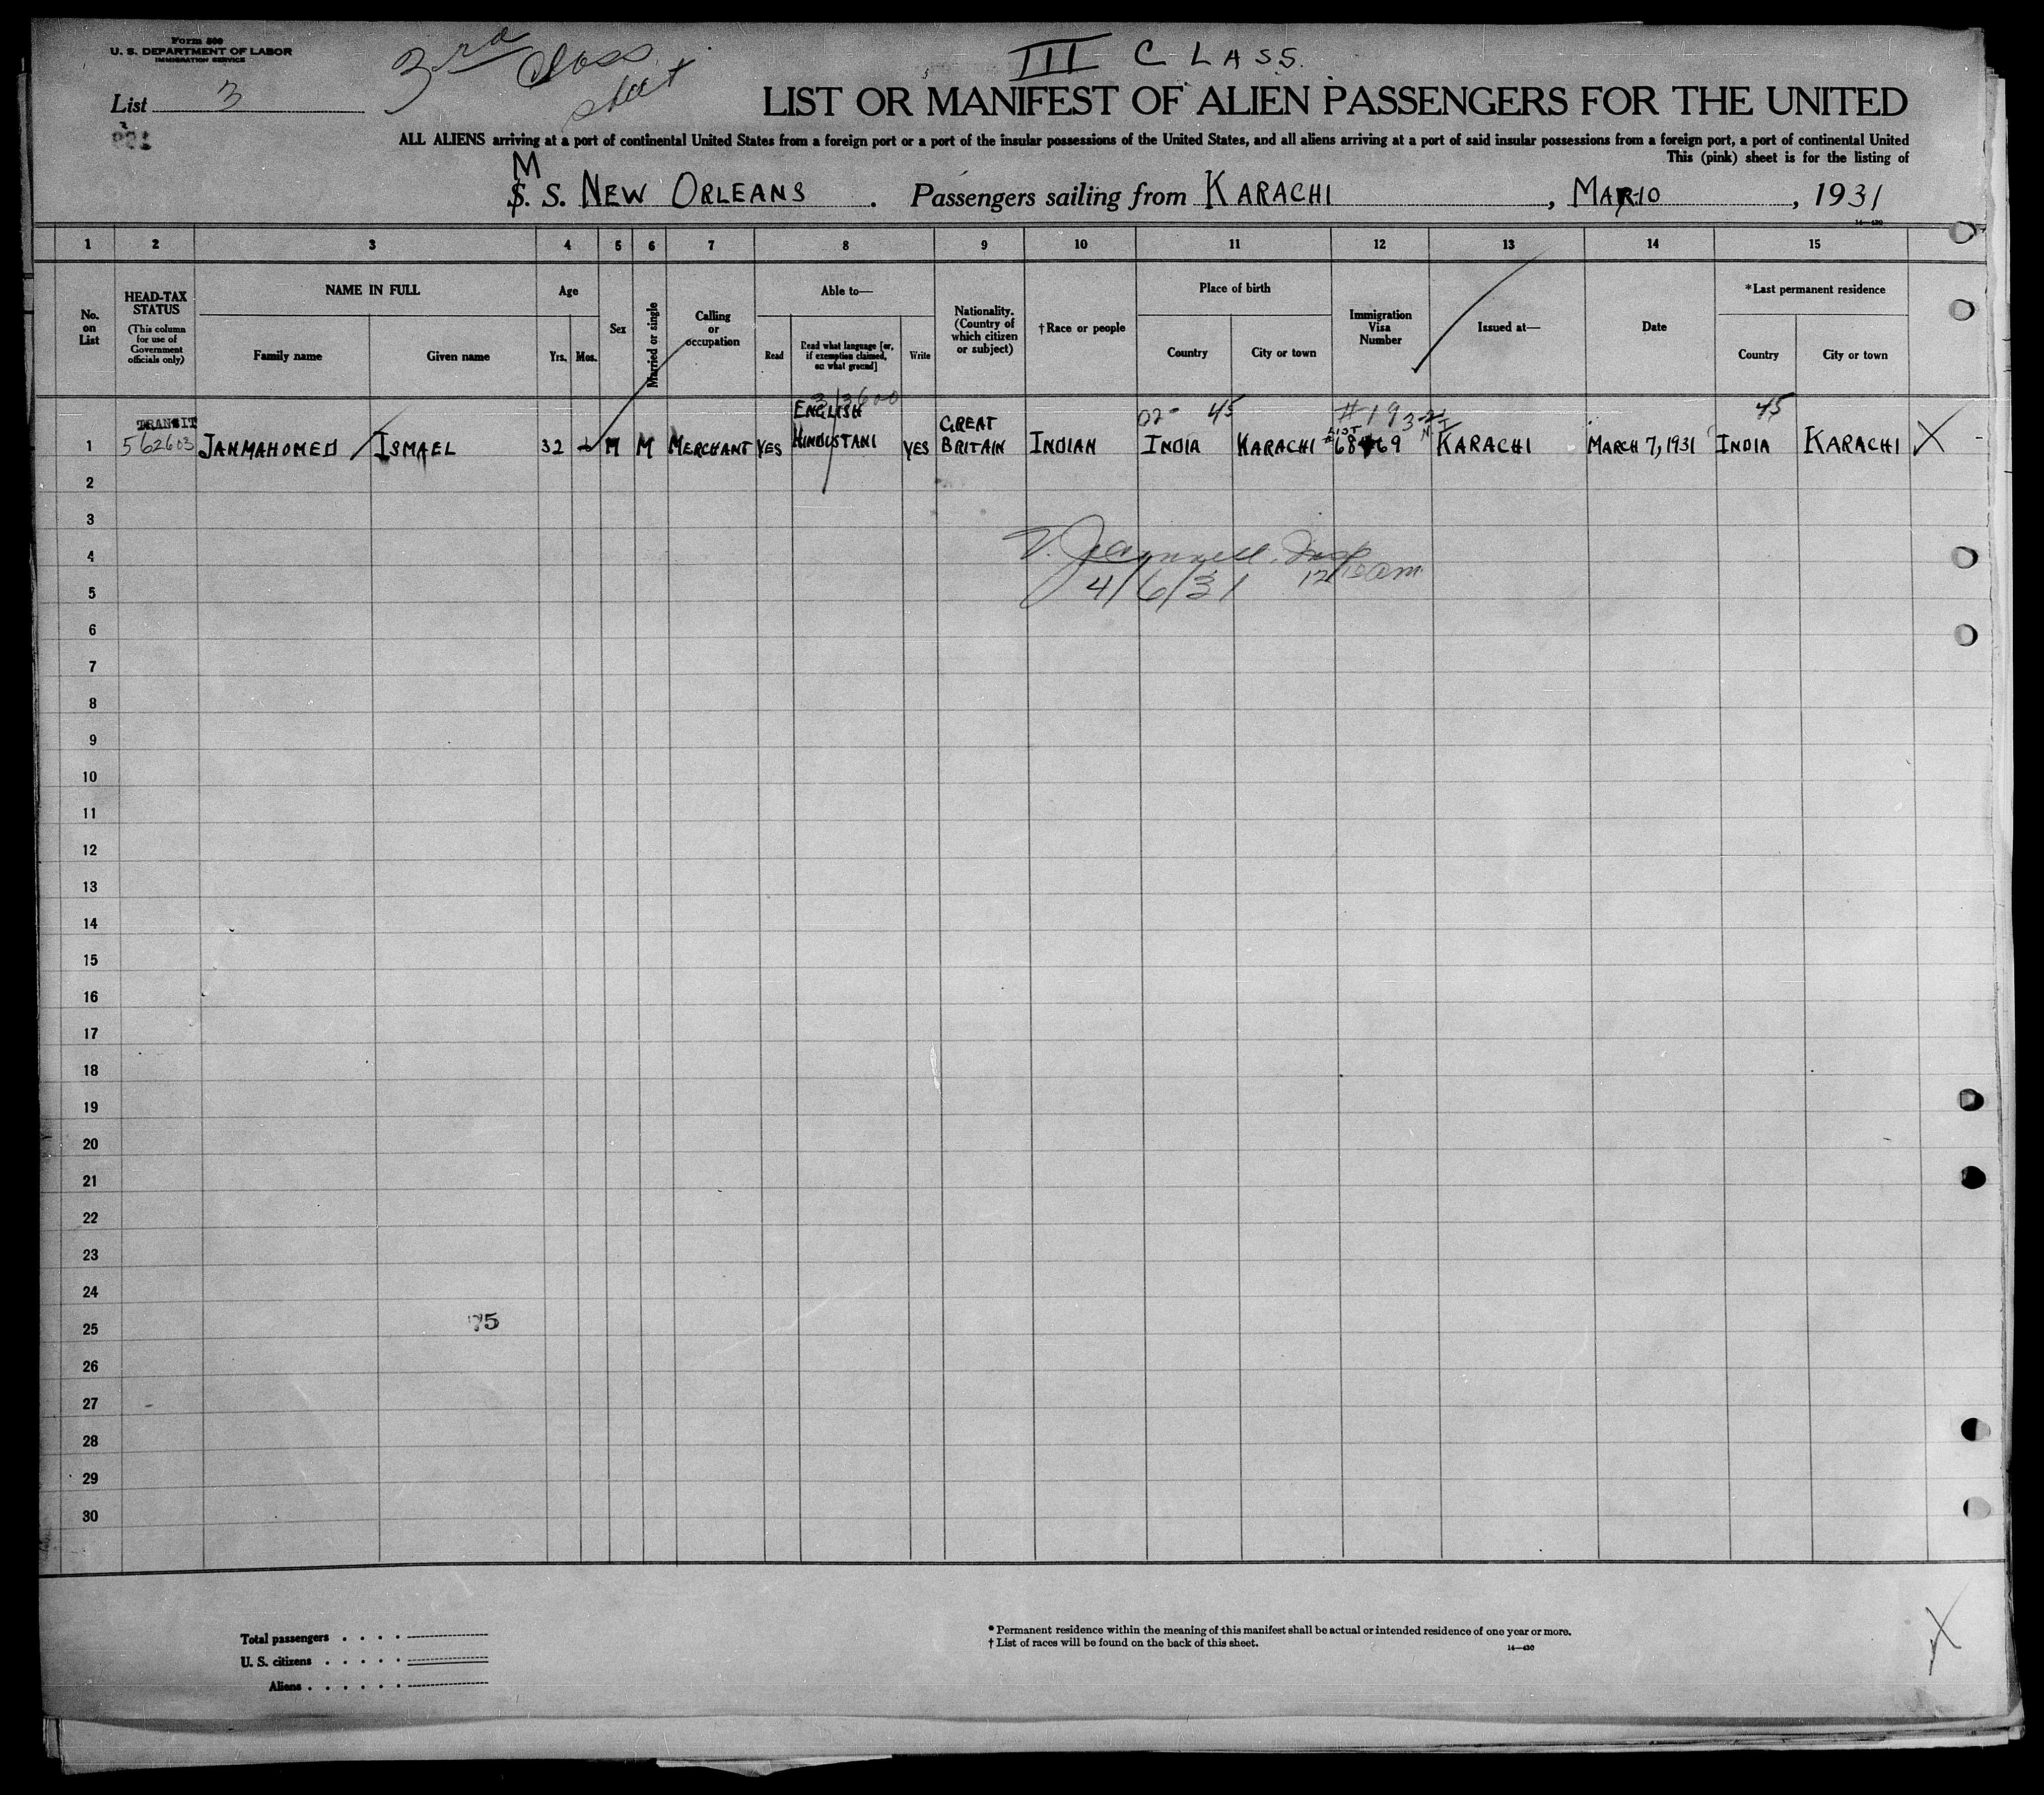 Form 500
U. S. DEPARTMENT OF LABOR
IMMIGRATION SERVICE
3rd Class
III CLASS.
List 3
LIST OR MANIFEST OF ALIEN PASSENGERS FOR THE UNITED
ALL ALIENS arriving at a port of continental United States from a foreign port or a port of the insular possessions of the United States, and all aliens arriving at a port of said insular possessions from a foreign port, a port of continental United
This (pink) sheet is for the listing of
M
S. S. NEW ORLEANS. Passengers sailing from KARACHI, MAR-10, 1931
14—430
1 2 3 4 5 6 7 8 9 10 11 12 13 14 15
No. on List
HEAD-TAX STATUS
(This column for use of Government officials only)
NAME IN FULL
Family name
Given name
Age
Yrs.
Mos.
Sex
Married or single
Calling or occupation
Able to—
Read
Read what language [or, if exemption claimed, on what ground]
Write
Nationality. (Country of which citizen or subject)
† Race or people
Place of birth
Country
City or town
Immigration Visa Number
Issued at—
Date
*Last permanent residence
Country
City or town
3/3600
02- 45
45
1 TRANSIT 562603 JANMAHOMED ISMAEL 32 - M M MERCHANT YES ENGLISH HINDUSTANI YES GREAT BRITAIN INDIAN INDIA KARACHI KARACHI MARCH 7, 1931 INDIA KARACHI X
2
3
4
4/6/31
5
6
7
8
9
10
11
12
13
14
15
16
17
18
19
20
21
22
23
24
25
26
27
28
29
30
Total passengers
U. S. citizens
Aliens
* Permanent residence within the meaning of this manifest shall be actual or intended residence of one year or more.
† List of races will be found on the back of this sheet.
14—430
X